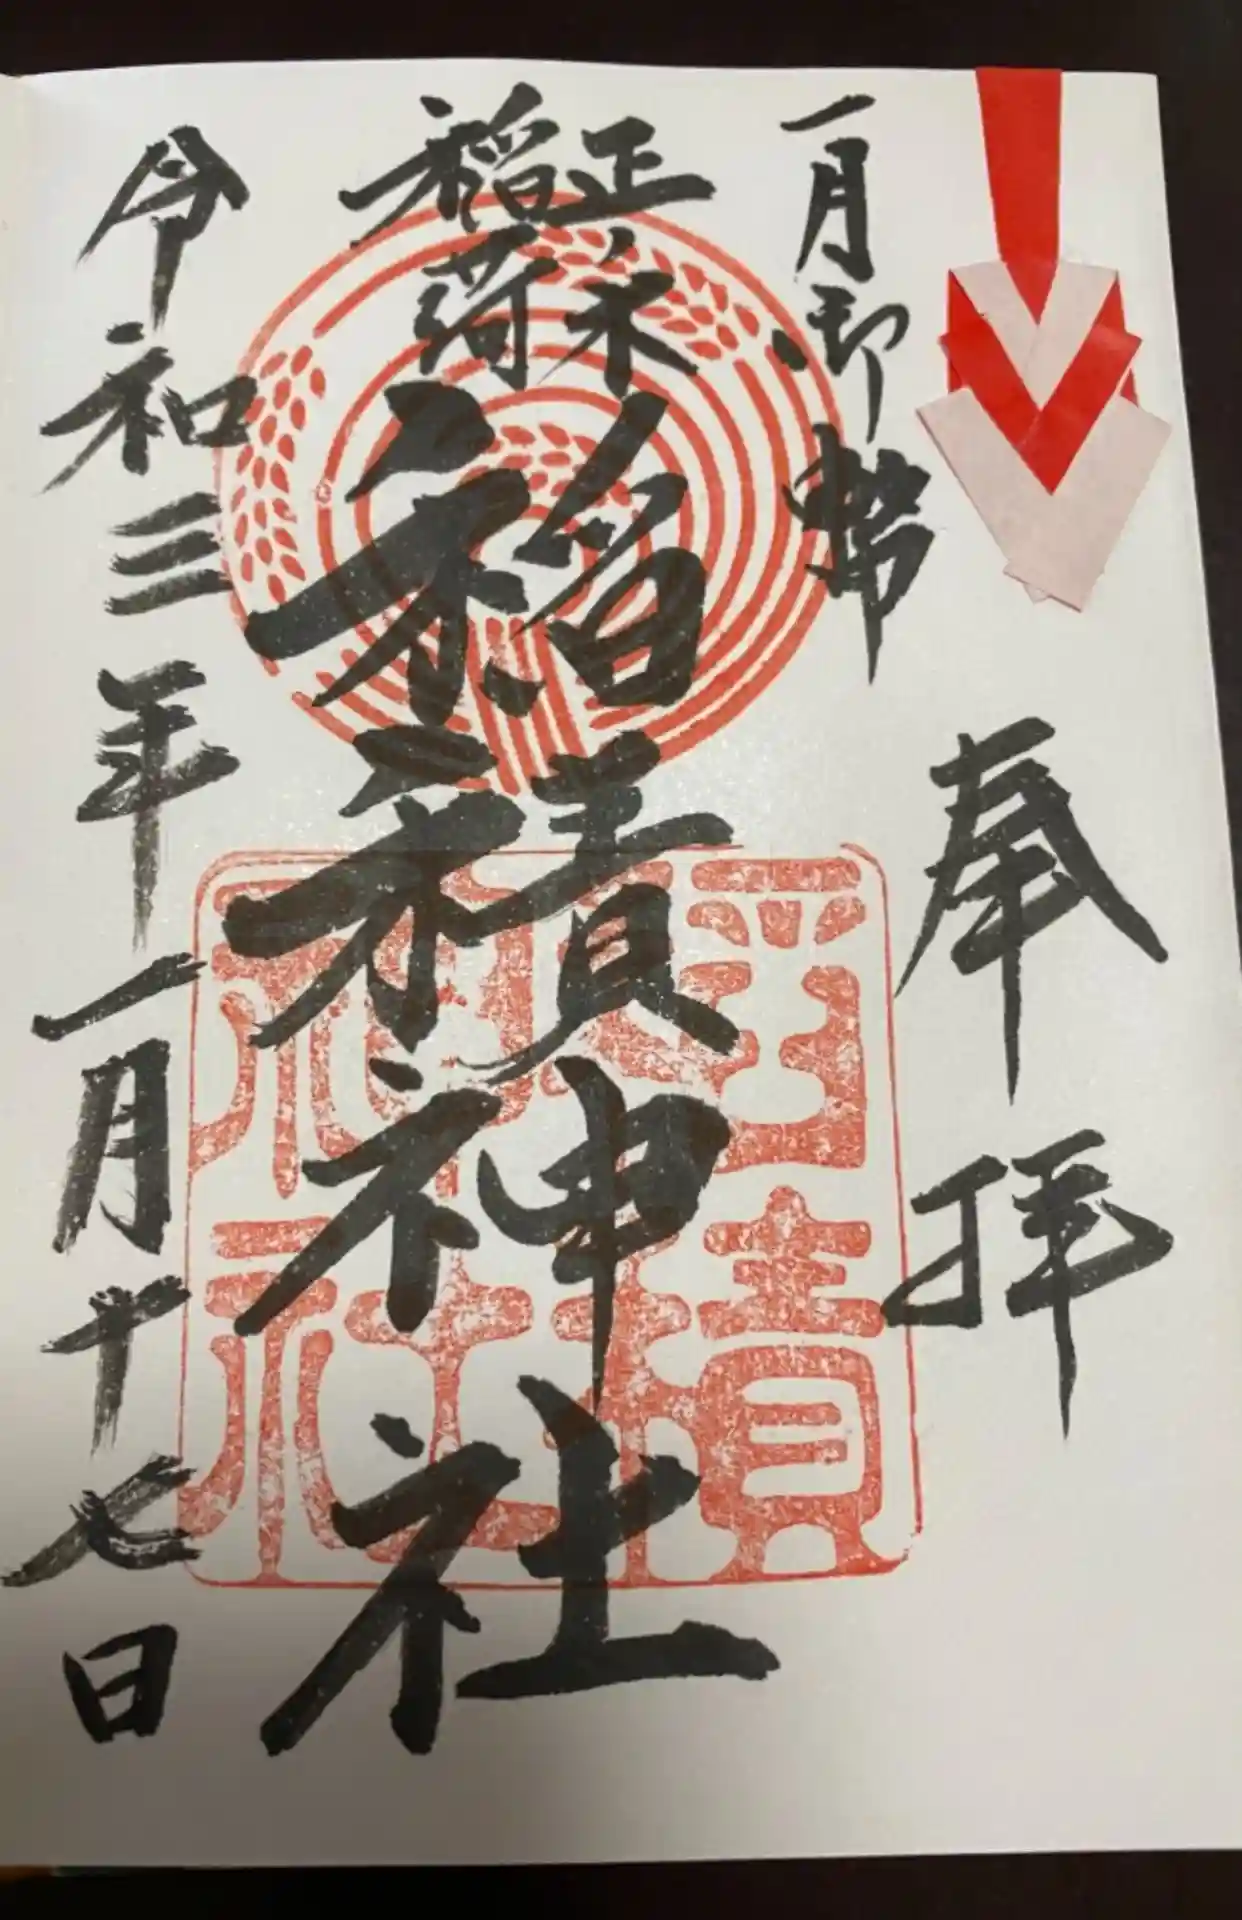 奉拝
一月御幣
正木
稲荷
稲積神社
令和三年一月十七日
稲積
神社